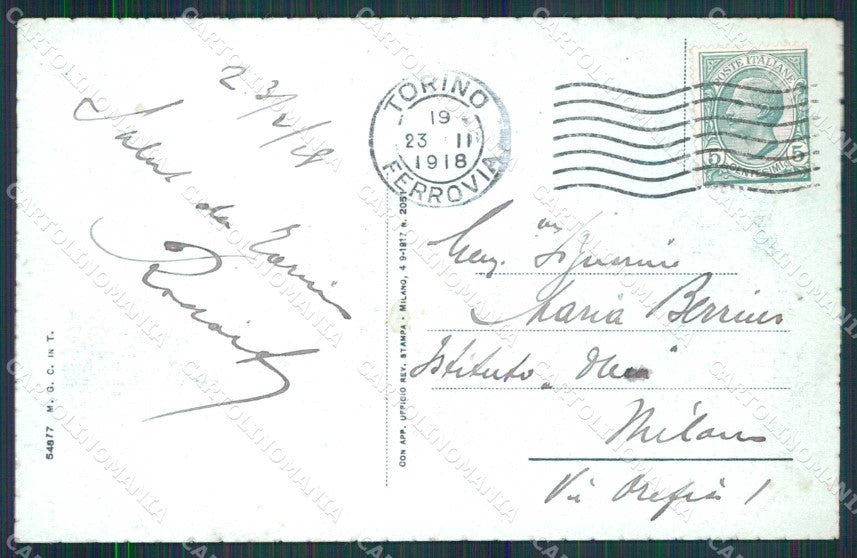 23/2/18
Saluti da
TORINO
19
23 II
1918
FERROVIA
POSTE ITALIANE
5 5
CENTESIMI
54877 M. G. C. IN T.
CON APP. UFFICIO REV. STAMPA - MILANO, 4-9-1917 N. 2051
Signorina
Maria
Istituto
Milano
Via Orefici 1
CARTOLINOMANIA